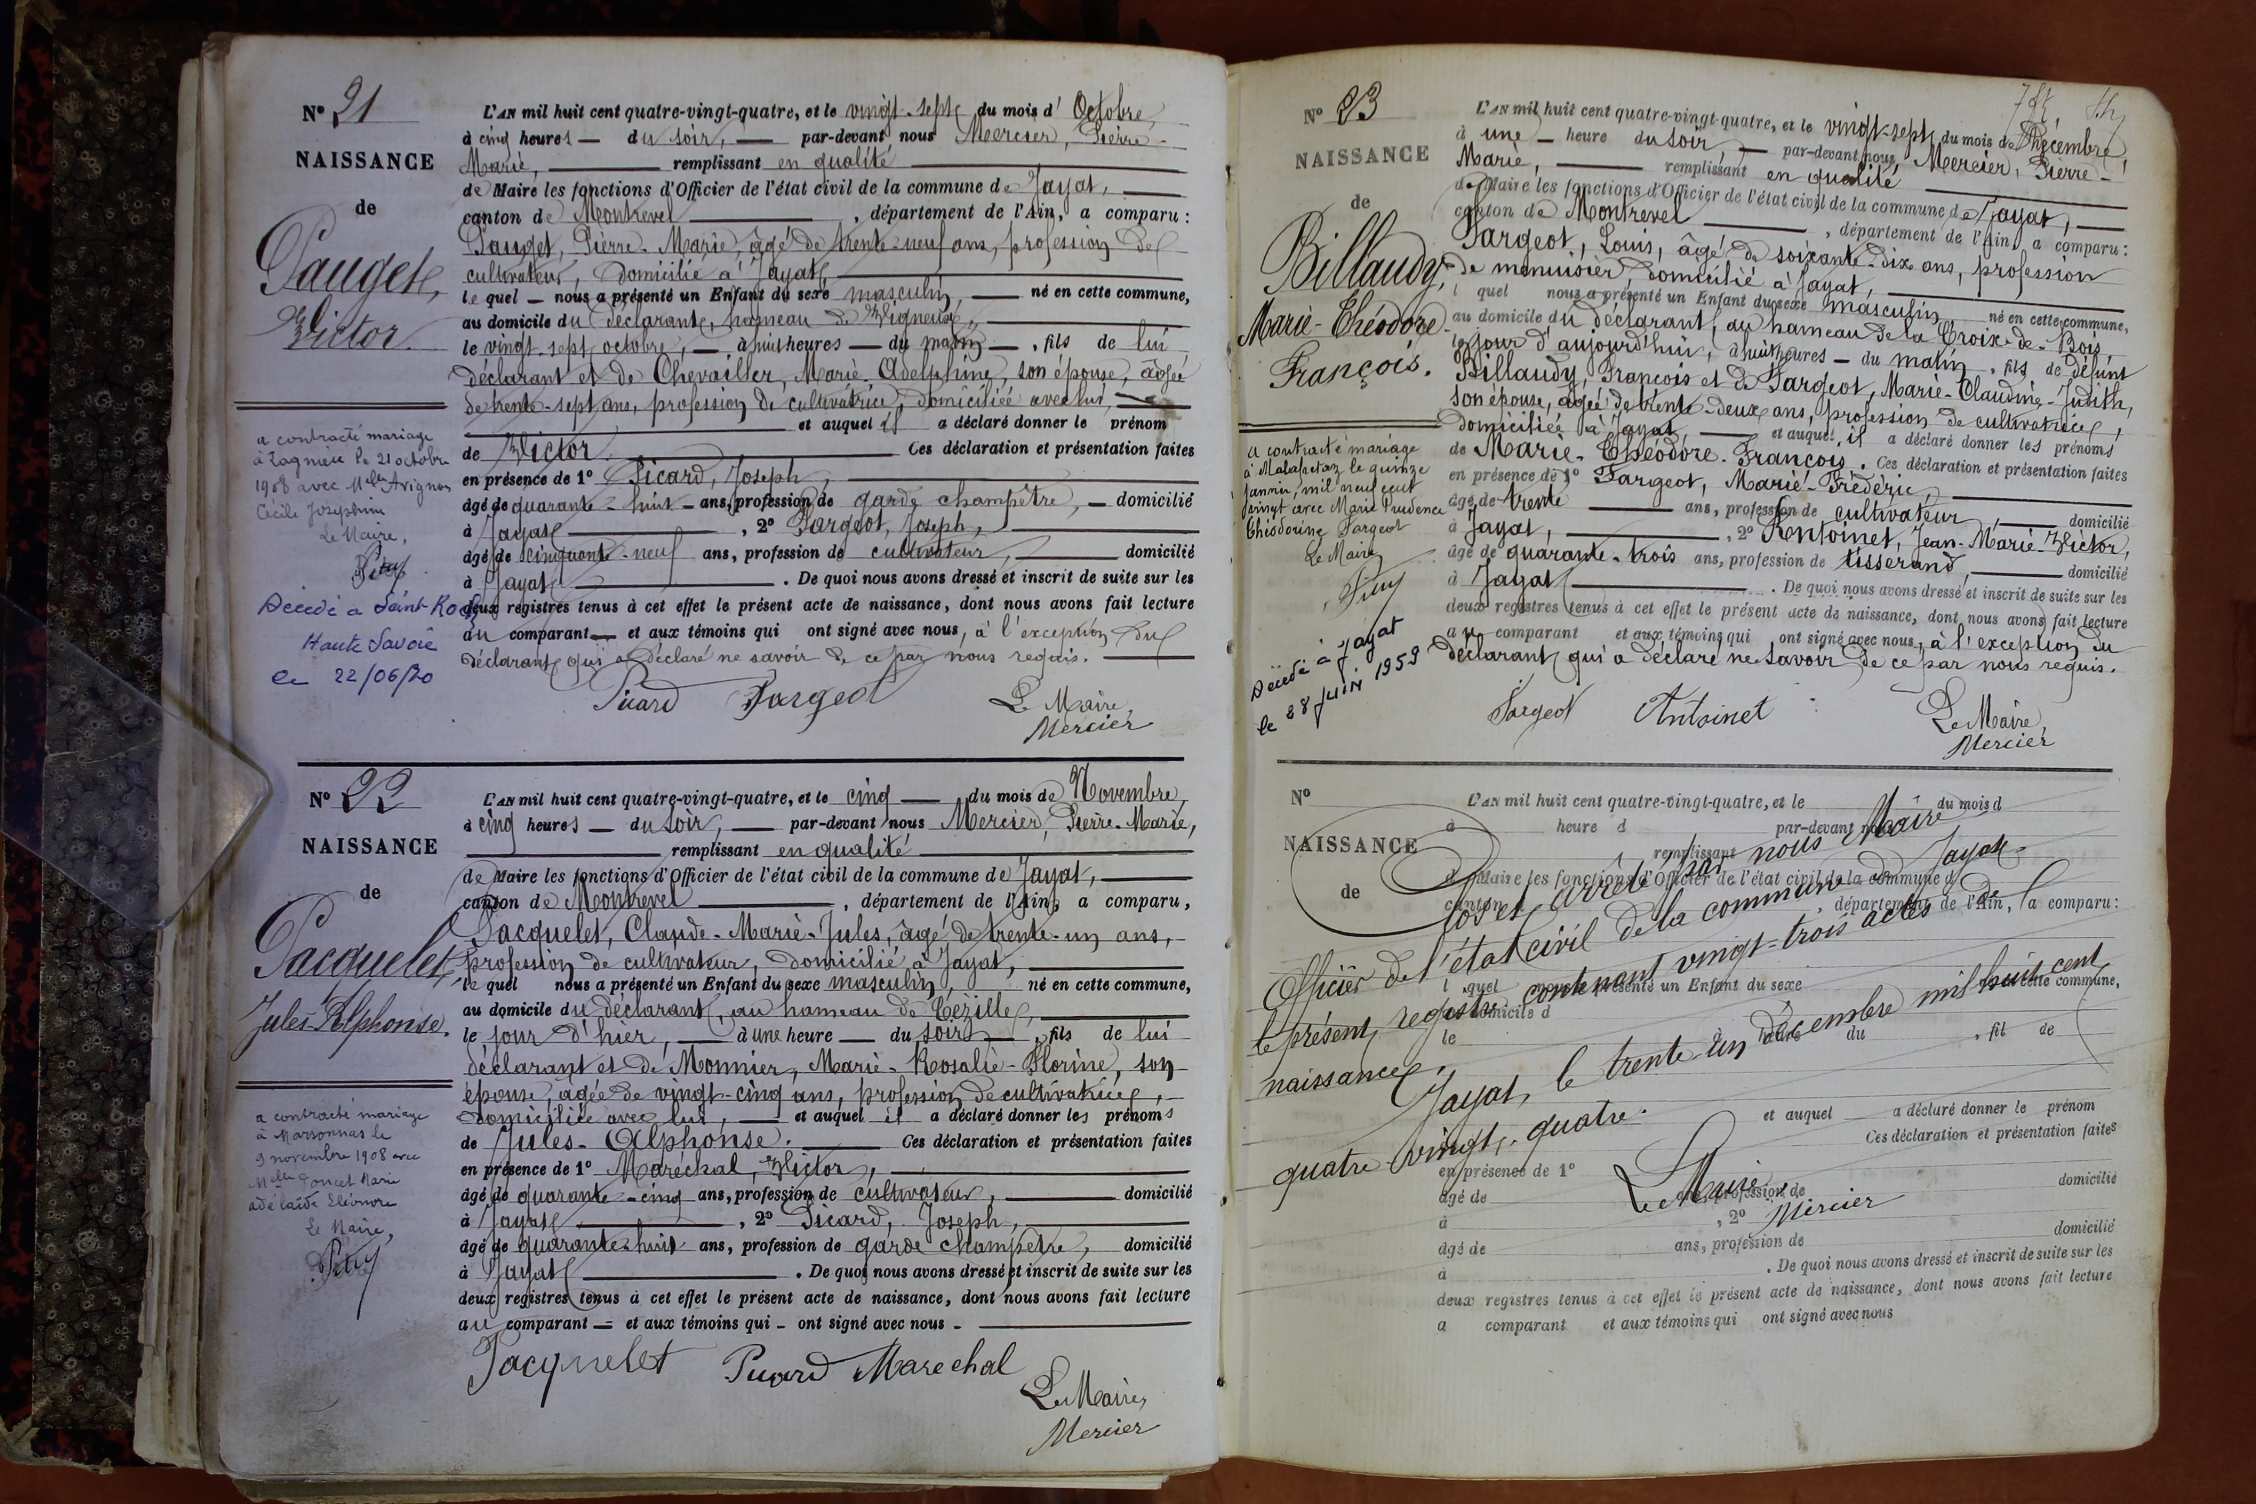 N° 21
NAISSANCE
de
Pauget,
Victor.
a contracté mariage
à Lagnieu le 21 octobre
1908 avec Melle Avignon
Cécile Joséphine
Le Maire,
Décédé à Saint-Roch
Haute Savoie
le 22/06/20
L'AN mil huit cent quatre-vingt-quatre, et le vingt-sept du mois d'Octobre,
à cinq heures — du soir, — par-devant nous Mercier, Pierre-
Marie, — remplissant en qualité —
de Maire les fonctions d'Officier de l'état civil de la commune de Jayat, —
canton de Montrevel — , département de l'Ain, a comparu :
Pauget, Pierre-Marie, âgé de trente-neuf ans, profession de
cultivateur, domicilié à Jayat, —
le quel — nous a présenté un Enfant du sexe masculin, — né en cette commune,
au domicile du déclarant, hameau de —
le vingt-sept octobre, — à huit heures — du matin — , fils de lui
déclarant et de Chevalier, Marie-Adelphine, son épouse, âgée
de trente-sept ans, profession de cultivatrice, domiciliée avec lui, —
— et auquel il a déclaré donner le prénom
de Victor. — Ces déclaration et présentation faites
en présence de 1° Picard, Joseph, —
âgé de quarante-huit — ans, profession de garde champêtre, — domicilié
à Jayat — , 2° Fargeot, Joseph, —
âgé de cinquante-neuf ans, profession de cultivateur, — domicilié
à Jayat — . De quoi nous avons dressé et inscrit de suite sur les
deux registres tenus à cet effet le présent acte de naissance, dont nous avons fait lecture
au comparant — et aux témoins qui ont signé avec nous, à l'exception du
déclarant qui a déclaré ne savoir de ce par nous requis. —
Picard Fargeot Le Maire,
Mercier
N° 22
NAISSANCE
de
Pacquelet,
Jules-Alphonse.
a contracté mariage
à Marsonnas le
9 novembre 1908 avec
Melle Poncet Marie
adélaïde Eléonore
Le Maire,
L'AN mil huit cent quatre-vingt-quatre, et le cinq — du mois de Novembre,
à cinq heures — du soir, — par-devant nous Mercier, Pierre-Marie,
— remplissant en qualité —
de Maire les fonctions d'Officier de l'état civil de la commune de Jayat, —
canton de Montrevel — , département de l'Ain, a comparu,
Pacquelet, Claude-Marie-Jules, âgé de trente-un ans, —
profession de cultivateur, domicilié à Jayat, —
le quel nous a présenté un Enfant du sexe masculin, — né en cette commune,
au domicile du déclarant, au hameau de Cezille, —
le jour d'hier, — à une heure — du soir — , fils de lui
déclarant et de Monnier, Marie-Rosalie-Florine, son
épouse, âgée de vingt-cinq ans, profession de cultivatrice, —
domiciliée avec lui, — et auquel il a déclaré donner les prénoms
de Jules-Alphonse. — Ces déclaration et présentation faites
en présence de 1° Maréchal, Victor, —
âgé de quarante-cinq ans, profession de cultivateur, — domicilié
à Jayat — , 2° Picard, Joseph, —
âgé de quarante-huit ans, profession de garde champêtre, domicilié
à Jayat — . De quoi nous avons dressé et inscrit de suite sur les
deux registres tenus à cet effet le présent acte de naissance, dont nous avons fait lecture
au comparant — et aux témoins qui — ont signé avec nous — —
Pacquelet Picard Marechal
Le Maire,
Mercier
N° 23
NAISSANCE
de
Billaudy,
Marie-Théodore-
François.
a contracté mariage
à Malafretaz le quinze
Janvier, mil neuf cent
vingt avec Marie Prudence
Théodorine Fargeot
Le Maire
Décédé à Jayat
le 28 JUIN 1959
L'AN mil huit cent quatre-vingt-quatre, et le vingt-sept du mois de Décembre,
à une — heure du soir, — par-devant nous Mercier, Pierre-
Marie, — remplissant en qualité —
de Maire les fonctions d'Officier de l'état civil de la commune de Jayat, —
canton de Montrevel — , département de l'Ain, a comparu :
Fargeot, Louis, âgé de soixante-dix ans, profession
de menuisier, domicilié à Jayat, —
l quel nous a présenté un Enfant du sexe masculin né en cette commune,
au domicile du déclarant, au hameau de la Croix-de-Bois
le jour d'aujourd'hui, à huit heures — du matin , fils de défunt
Billaudy, François et de Fargeot, Marie-Claudine-Judith,
son épouse, âgée de trente-deux ans, profession de cultivatrice,
domiciliée à Jayat, — et auquel il a déclaré donner les prénoms
de Marie-Théodore-François. Ces déclaration et présentation faites
en présence de 1° Fargeot, Marie-Frédéric, —
âgé de trente — ans, profession de cultivateur — domicilié
à Jayat, — , 2° Antoinet, Jean-Marie-Victor,
âgé de quarante-trois ans, profession de tisserand, — domicilié
à Jayat — . De quoi nous avons dressé et inscrit de suite sur les
deux registres tenus à cet effet le présent acte de naissance, dont nous avons fait lecture
au comparant et aux témoins qui ont signé avec nous, à l'exception du
déclarant qui a déclaré ne savoir de ce par nous requis.
Fargeot Antoinet Le Maire,
Mercier
N°
NAISSANCE
de
L'AN mil huit cent quatre-vingt-quatre, et le du mois d
à heure d par-devant nous
remplissant
d Maire les fonctions d'Officier de l'état civil de la commune d
canton , département de l'Ain, a comparu :
l quel nous a présenté un Enfant du sexe né en cette commune,
au domicile d
le à heure du , fil de
et auquel a déclaré donner le prénom
Ces déclaration et présentation faites
en présence de 1°
âgé de ans, profession de domicilié
à , 2°
âgé de ans, profession de domicilié
à . De quoi nous avons dressé et inscrit de suite sur les
deux registres tenus à cet effet le présent acte de naissance, dont nous avons fait lecture
a comparant et aux témoins qui ont signé avec nous
Clos et arrêté par nous Maire
Officier de l'état civil de la commune de Jayat
le présent registre contenant vingt-trois actes de
naissance.
Jayat, le trente-un décembre mil huit cent
quatre-vingt-quatre.
Le Maire,
Mercier